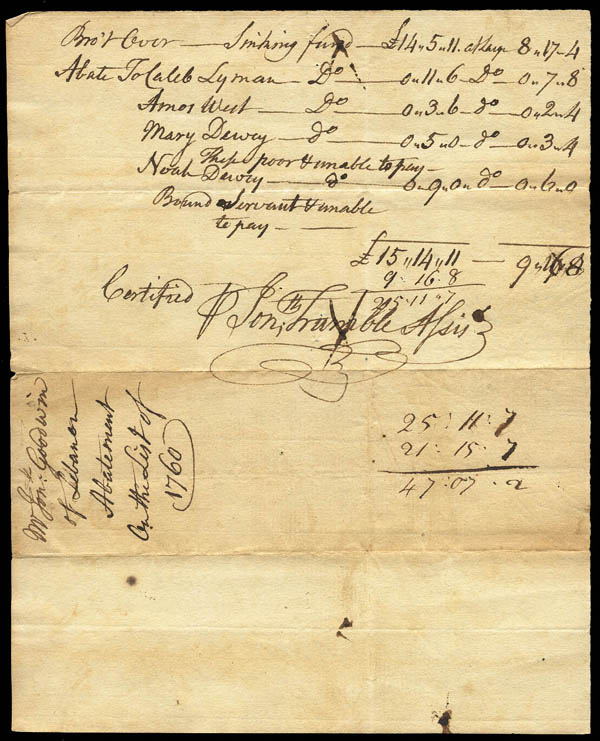 Bro't Over — Sinking fund — £14〃5〃11. 8〃17〃4
Abate To Caleb Lyman — Do — 0〃11〃6 — Do — 0〃7〃8
Amos West — Do — 0〃3〃6 — do — 0〃2〃4
Mary Dewey — do — 0〃5〃0 — do — 0〃3〃4
These poor & unable to pay —
Noah Dewey — do — 0〃9〃0 — do — 0〃6〃0
Bound Servant & unable
to pay — —
£15〃14〃11 — 9〃16〃8
9 . 16 . 8
25 . 11 . 7
Certified ⅌ Jonth. Trumble Assist
25 : 11 : 7
21 : 15 : 7
47 : 07 : 2
Mr Jonth: Goodwin
of Lebanon
Abatement
On the List of
1760